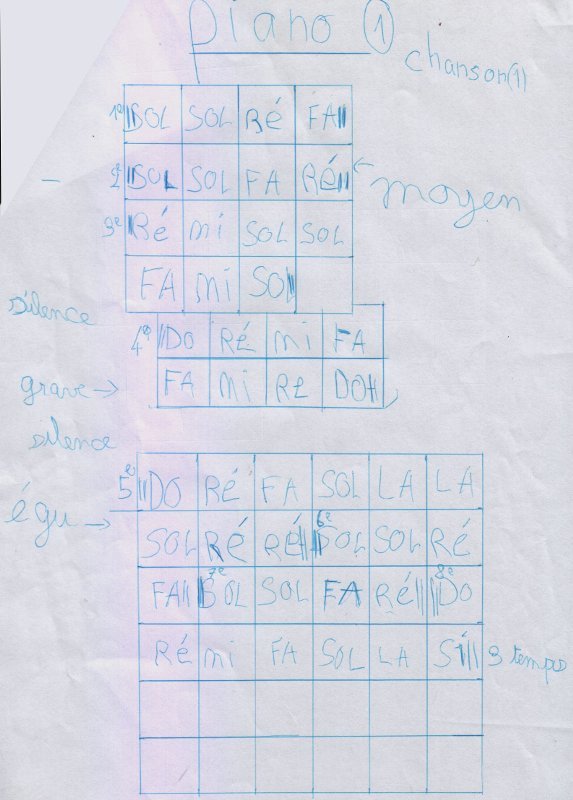 piano 1
chanson(1)
1e SOL SOL Ré FA
2e SOL SOL FA Ré ← moyen
3e Ré mi SOL SOL
FA mi SOL
silence
4e DO Ré mi FA
grave → FA mi RE DO
silence
5e DO Ré FA SOL LA LA
égu → SOL Ré Ré 6e SOL SOL Ré
FA 7e SOL SOL FA Ré 8e Do
Ré mi FA SOL LA Si 3 temps